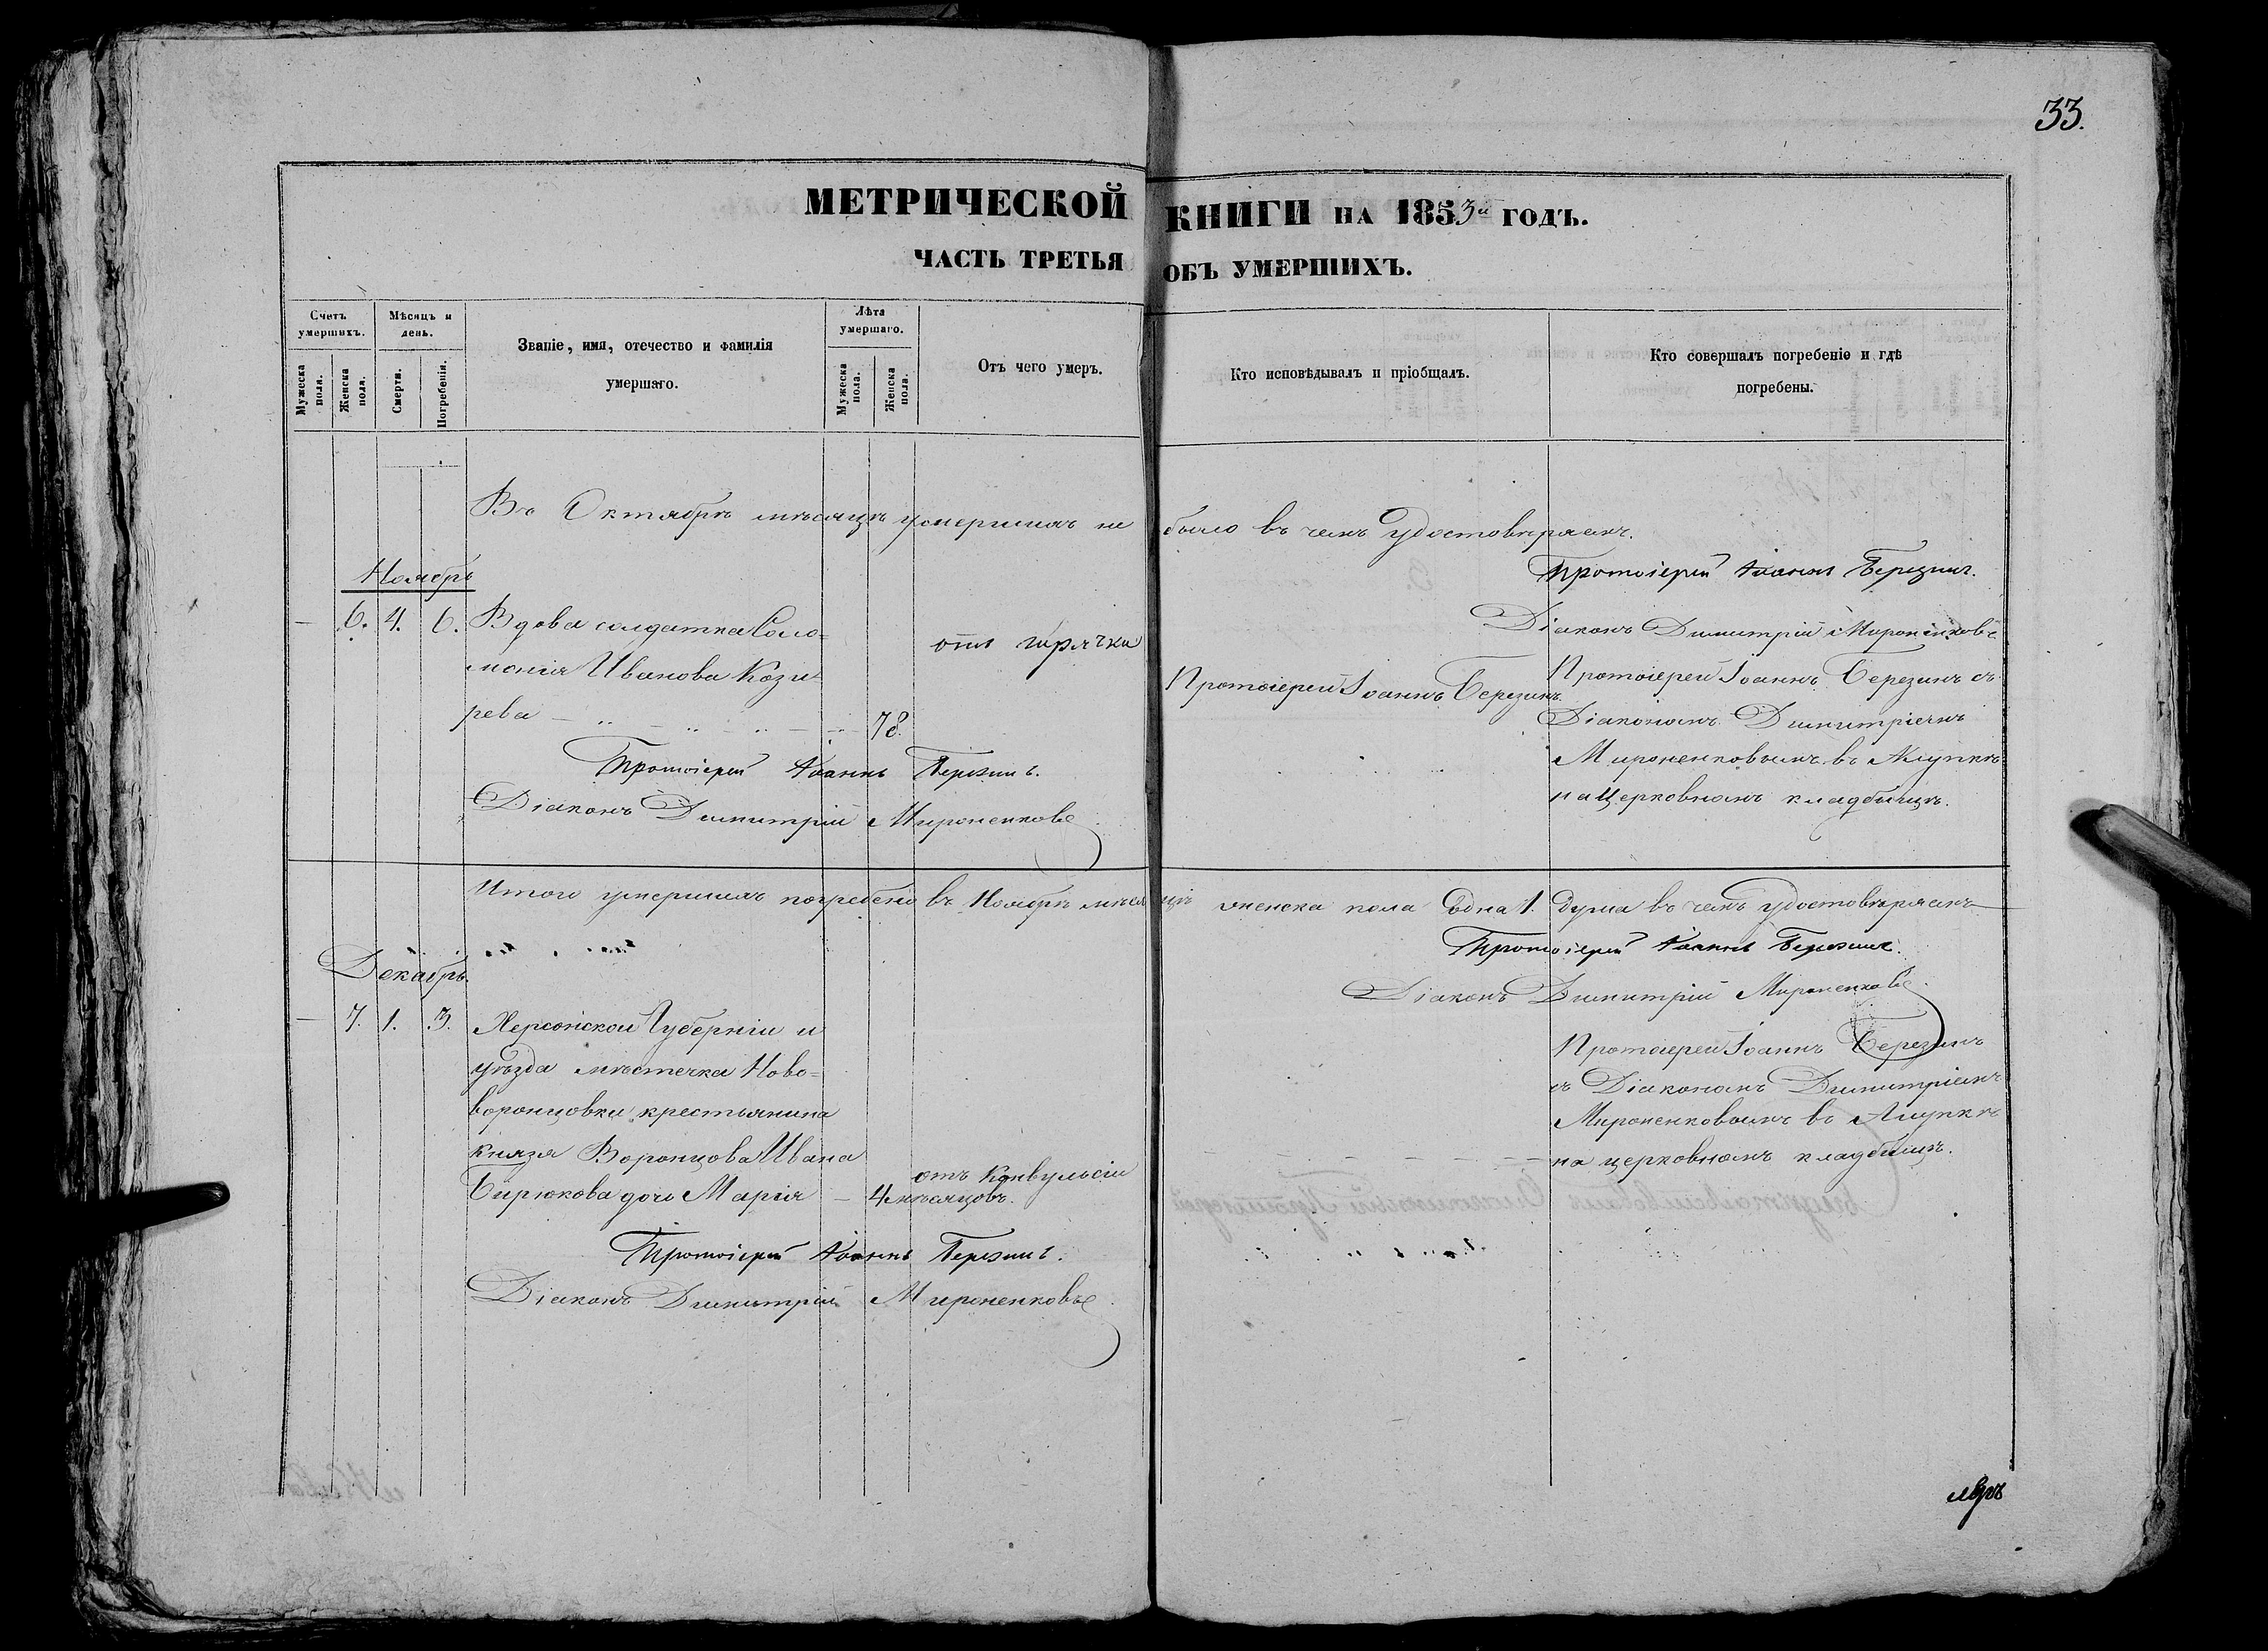 33.
МЕТРИЧЕСКОЙ КНИГИ НА 1853й ГОДЪ.
ЧАСТЬ ТРЕТЬЯ ОБЪ УМЕРШИХЪ.
Счетъ умершихъ.
Мужеска пола.
Женска пола.
Мѣсяцъ и день.
Смерти.
Погребенія.
Званіе, имя, отечество и фамилія умершаго.
Лѣта умершаго.
Мужеска пола.
Женска пола.
Отъ чего умеръ.
Кто исповѣдывалъ и пріобщалъ.
Кто совершалъ погребеніе и гдѣ погребены.
Въ Октябрѣ мѣсяцѣ умершихъ не было въ чемъ удостовѣряемъ.
Протоіерей Іоаннъ Березинъ.
Діаконъ Димитрій Мироненковъ
Ноябрь
— 6. 4. 6. Вдова солдатка Соло=
монія Иванова Кози=
рева — — — 78.
отъ горячки
Протоіерей Іоаннъ Березинъ
Протоіерей Іоаннъ Березинъ съ
Діакономъ Димитріемъ
Мироненковымъ въ Алупкѣ
на церковномъ кладбищѣ.
Протоіерей Іоаннъ Березинъ.
Діаконъ Димитрій Мироненковъ
Итого умершихъ погребено въ Ноябрѣ мѣсяцѣ женска пола Една 1. душа въ чемъ удостовѣряемъ
Протоіерей Іоаннъ Березинъ.
Діаконъ Димитрій Мироненковъ
Декабрь.
— 7. 1. 3. Херсонской Губерніи и
уѣзда мѣстечка Ново=
воронцовки крестьянина
князя Воронцова Ивана
Бирюкова дочь Марія — 4 мѣсяцовъ.
отъ конвульсіи
Протоіерей Іоаннъ Березинъ
съ Діакономъ Димитріемъ
Мироненковымъ въ Алупкѣ
на церковномъ кладбищѣ.
Протоіерей Іоаннъ Березинъ.
Діаконъ Димитрій Мироненковъ